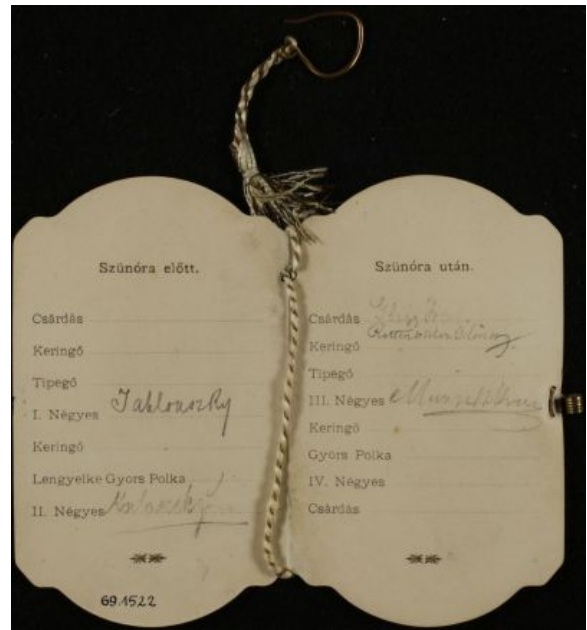 Szünóra előtt.
Csárdás
Keringő
Tipegő
I. Négyes Jablonszky
Keringő
Lengyelke Gyors Polka
II. Négyes
69.1522
Szünóra után.
Csárdás
Keringő
Tipegő
III. Négyes
Keringő
Gyors Polka
IV. Négyes
Csárdás